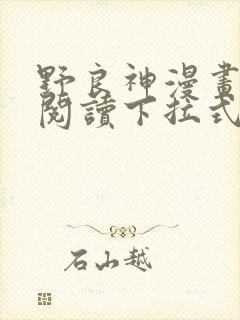 野良神漫畫
閱讀下拉式
石山越